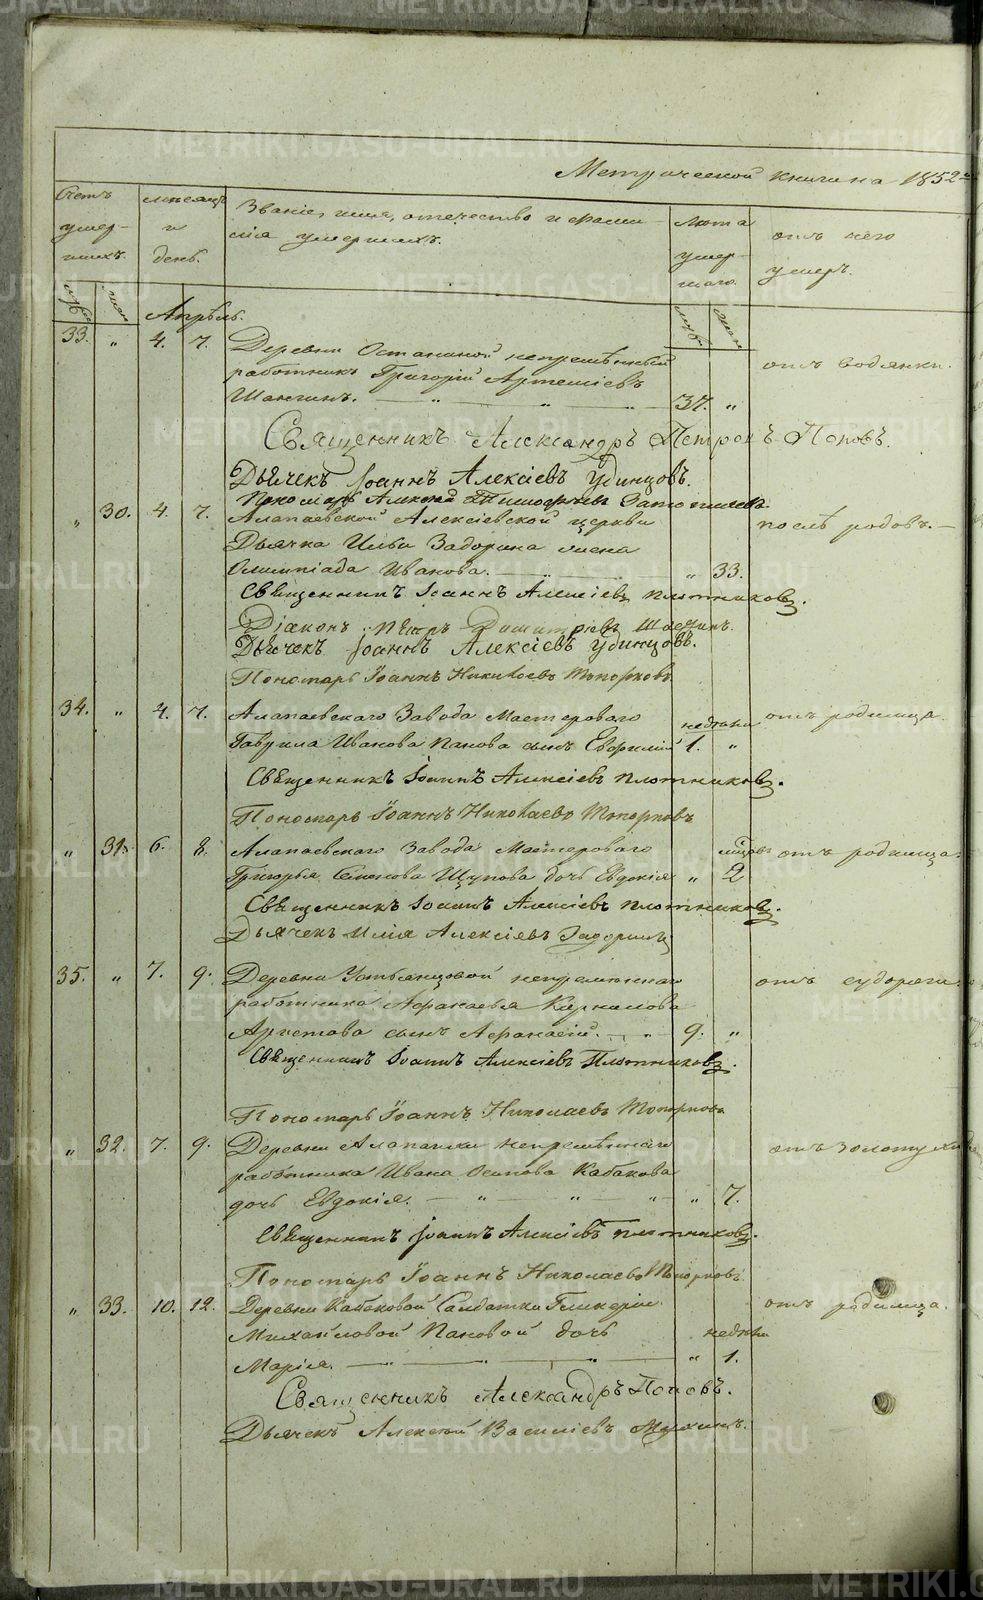 Метрической книги на 1852
Счетъ умер-шихъ.
мѣсяцъ и день.
Званіе, имя, отечество и фами-
лія умершихъ.
Лѣта умер-шаго.
отъ чего умеръ.
муж. жен.
Апрѣль.
муж. жен.
33. " 4. 7. Деревни Останиной непремѣнный
работникъ Григорій Артеміевъ отъ водянки.
Шангинъ. — " — " — 37. "
Священникъ Александръ Петровъ Поповъ.
Дьячекъ Іоаннъ Алексіевъ Удинцовъ.
Пономарь Алексій
" 30. 4. 7. Алапаевской Алексіевской церкви послѣ родовъ. —
Дьячка Ильи Задорина жена
Олимпіада Иванова. " 33.
Священникъ Іоаннъ Алексіевъ Плотниковъ.
Діаконъ Петръ Димитріевъ
Дьячекъ Іоаннъ Алексіевъ Удинцовъ.
Пономарь Іоаннъ Николаевъ Топорковъ
34. " 4. 7. Алапаевскаго Завода Мастероваго недѣли отъ родимца.
Гаврила Иванова Панова сынъ Евфимій 1. "
Священникъ Іоаннъ Алексіевъ Плотниковъ.
Пономарь Іоаннъ Николаевъ Топорковъ
" 31. 6. 8. Алапаевскаго Завода Мастероваго мѣсяц. отъ родимца.
Григорья Семенова Щупова дочь Евдокія " 2
Священникъ Іоаннъ Алексіевъ Плотниковъ.
Дьячекъ Илія Алексіевъ Задоринъ
35. " 7. 9. Деревни Устьянцовой непремѣннаго отъ судороги.
работника Афанасья Карпилова
Аристова сынъ Афанасій. — " — 9. "
Священникъ Іоаннъ Алексіевъ Плотниковъ.
Пономарь Іоаннъ Николаевъ Топорковъ
" 32. 7. 9. Деревни Алапаихи непремѣннаго отъ золотухи
работника Ивана Осипова Кабакова
дочь Евдокія. — " — " — " — " 7.
Священникъ Іоаннъ Алексіевъ Плотниковъ.
Пономарь Іоаннъ Николаевъ Топорковъ.
" 33. 10. 12. Деревни Кабаковой Солдатки Гликеріи отъ родимца.
Михайловой Пановой дочь недѣли
Марія. — " — " — " — " 1.
Священникъ Александръ Поповъ.
Дьячекъ Алексій Василіевъ Мухинъ.
METRIKI.GASO-URAL.RU